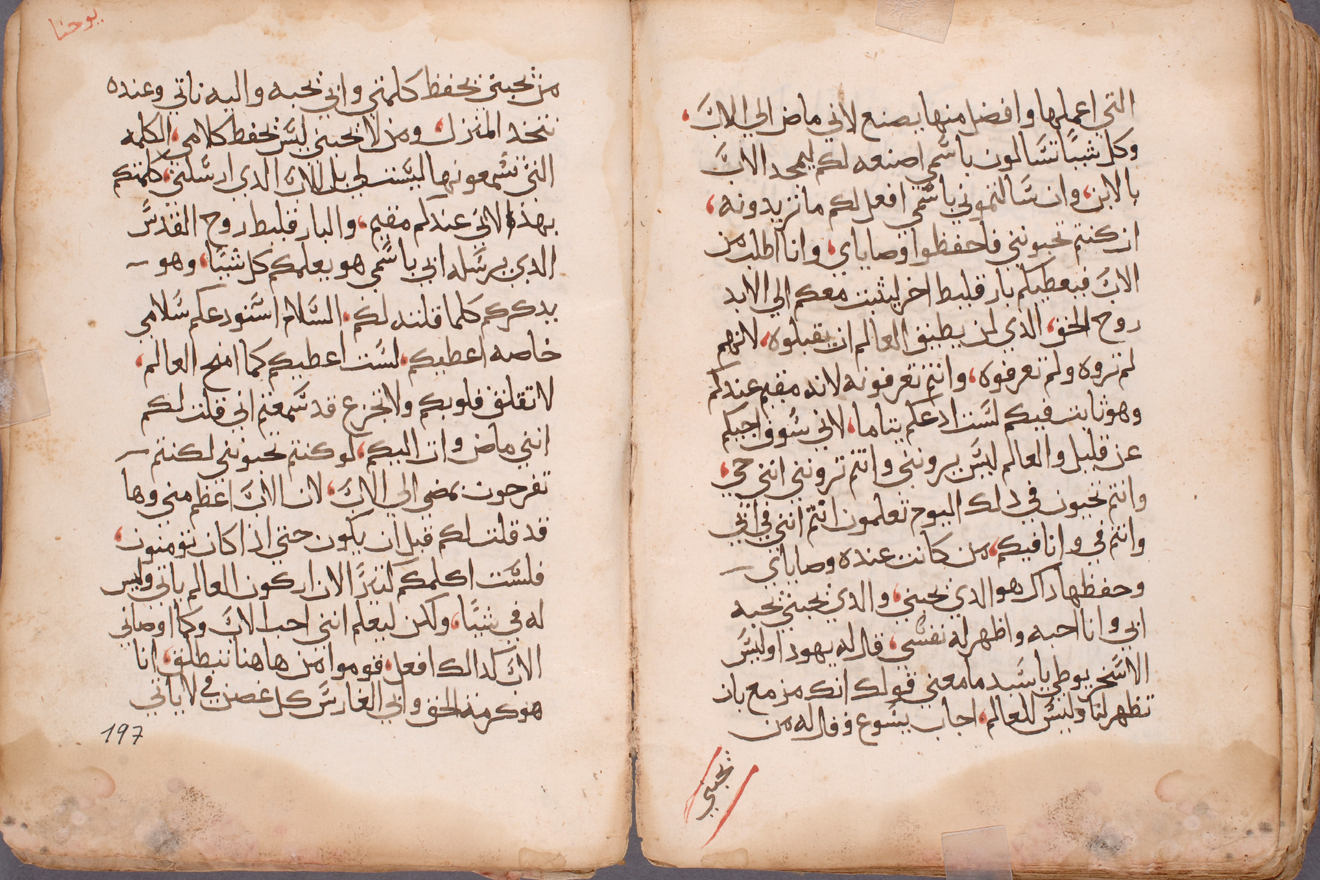 التي اعملها وافضل منها يصنع لاني ماض الي الاب
وكل شيئا تسالون باسمي اصنعه لكم ليمجد الاب
بالابن وان سالتموني باسمي افعل لكم ما تريدونه
ان كنتم تحبونني فاحفظوا وصاياي وانا اطلب من
الاب فيعطيكم بارقليط اخر ليثبت معكم الي الابد
روح الحق الذي لن يطيق العالم ان يقبلوه لانهم
لم يروه ولم يعرفوه وانتم تعرفونه لانه مقيم عندكم
وهو ثابت فيكم لست ادعكم يتاما لاني سوف اجيكم
عن قليل والعالم ليس يرونني وانتم ترونني انني حي
وانتم تحيون في ذلك اليوم تعلمون انتم انني في ابي
وانتم في وانا فيكم من كانت عنده وصاياي
وحفظها ذاك هو الذي يحبني والذي يحبني يحبه
ابي وانا احبه واظهر له نفسي قال له يهودا وليس
الاسخريوطي يا سيد ما معني قولك انك مزمع بان
تظهر لنا وليس للعالم اجاب يسوع وقال له من
يحبني
يوحنا
من يحبني يحفظ كلمتي وابي يحبه واليه ناتي وعنده
نتخد المنزل ومن لا يحبني ليس يحفظ كلامي الكلمه
التي تسمعونها ليست لي بل للاب الذي ارسلني كلمتكم
بهذه لاني عندكم مقيم والبارقليط روح القدس
الذي يرسله ابي باسمي هو يعلمكم كل شيئا وهو
يذكركم كلما قلته لكم السلام استودعكم سلامي
خاصه اعطيكم لست اعطيكم كما امنح العالم
لا تقلق قلوبكم ولا تجزع قد سمعتم اني قلت لكم
انني ماض وات اليكم لو كنتم تحبونني لكنتم
تفرحون بمضي الي الاب لان الاب اعظم مني وها
قد قلت لكم قبل ان يكون حتي اذا كان تومنون
فلست اكلمكم كثيرا الان اركون العالم ياتي وليس
له في شيئا ولكن ليعلم انني احب الاب وكما اوصاني
الاب كذالك افعل قوموا من هاهنا ننطلق انا
هو كرمة الحق وابي الغارس كل غصن في لا ياتي
197